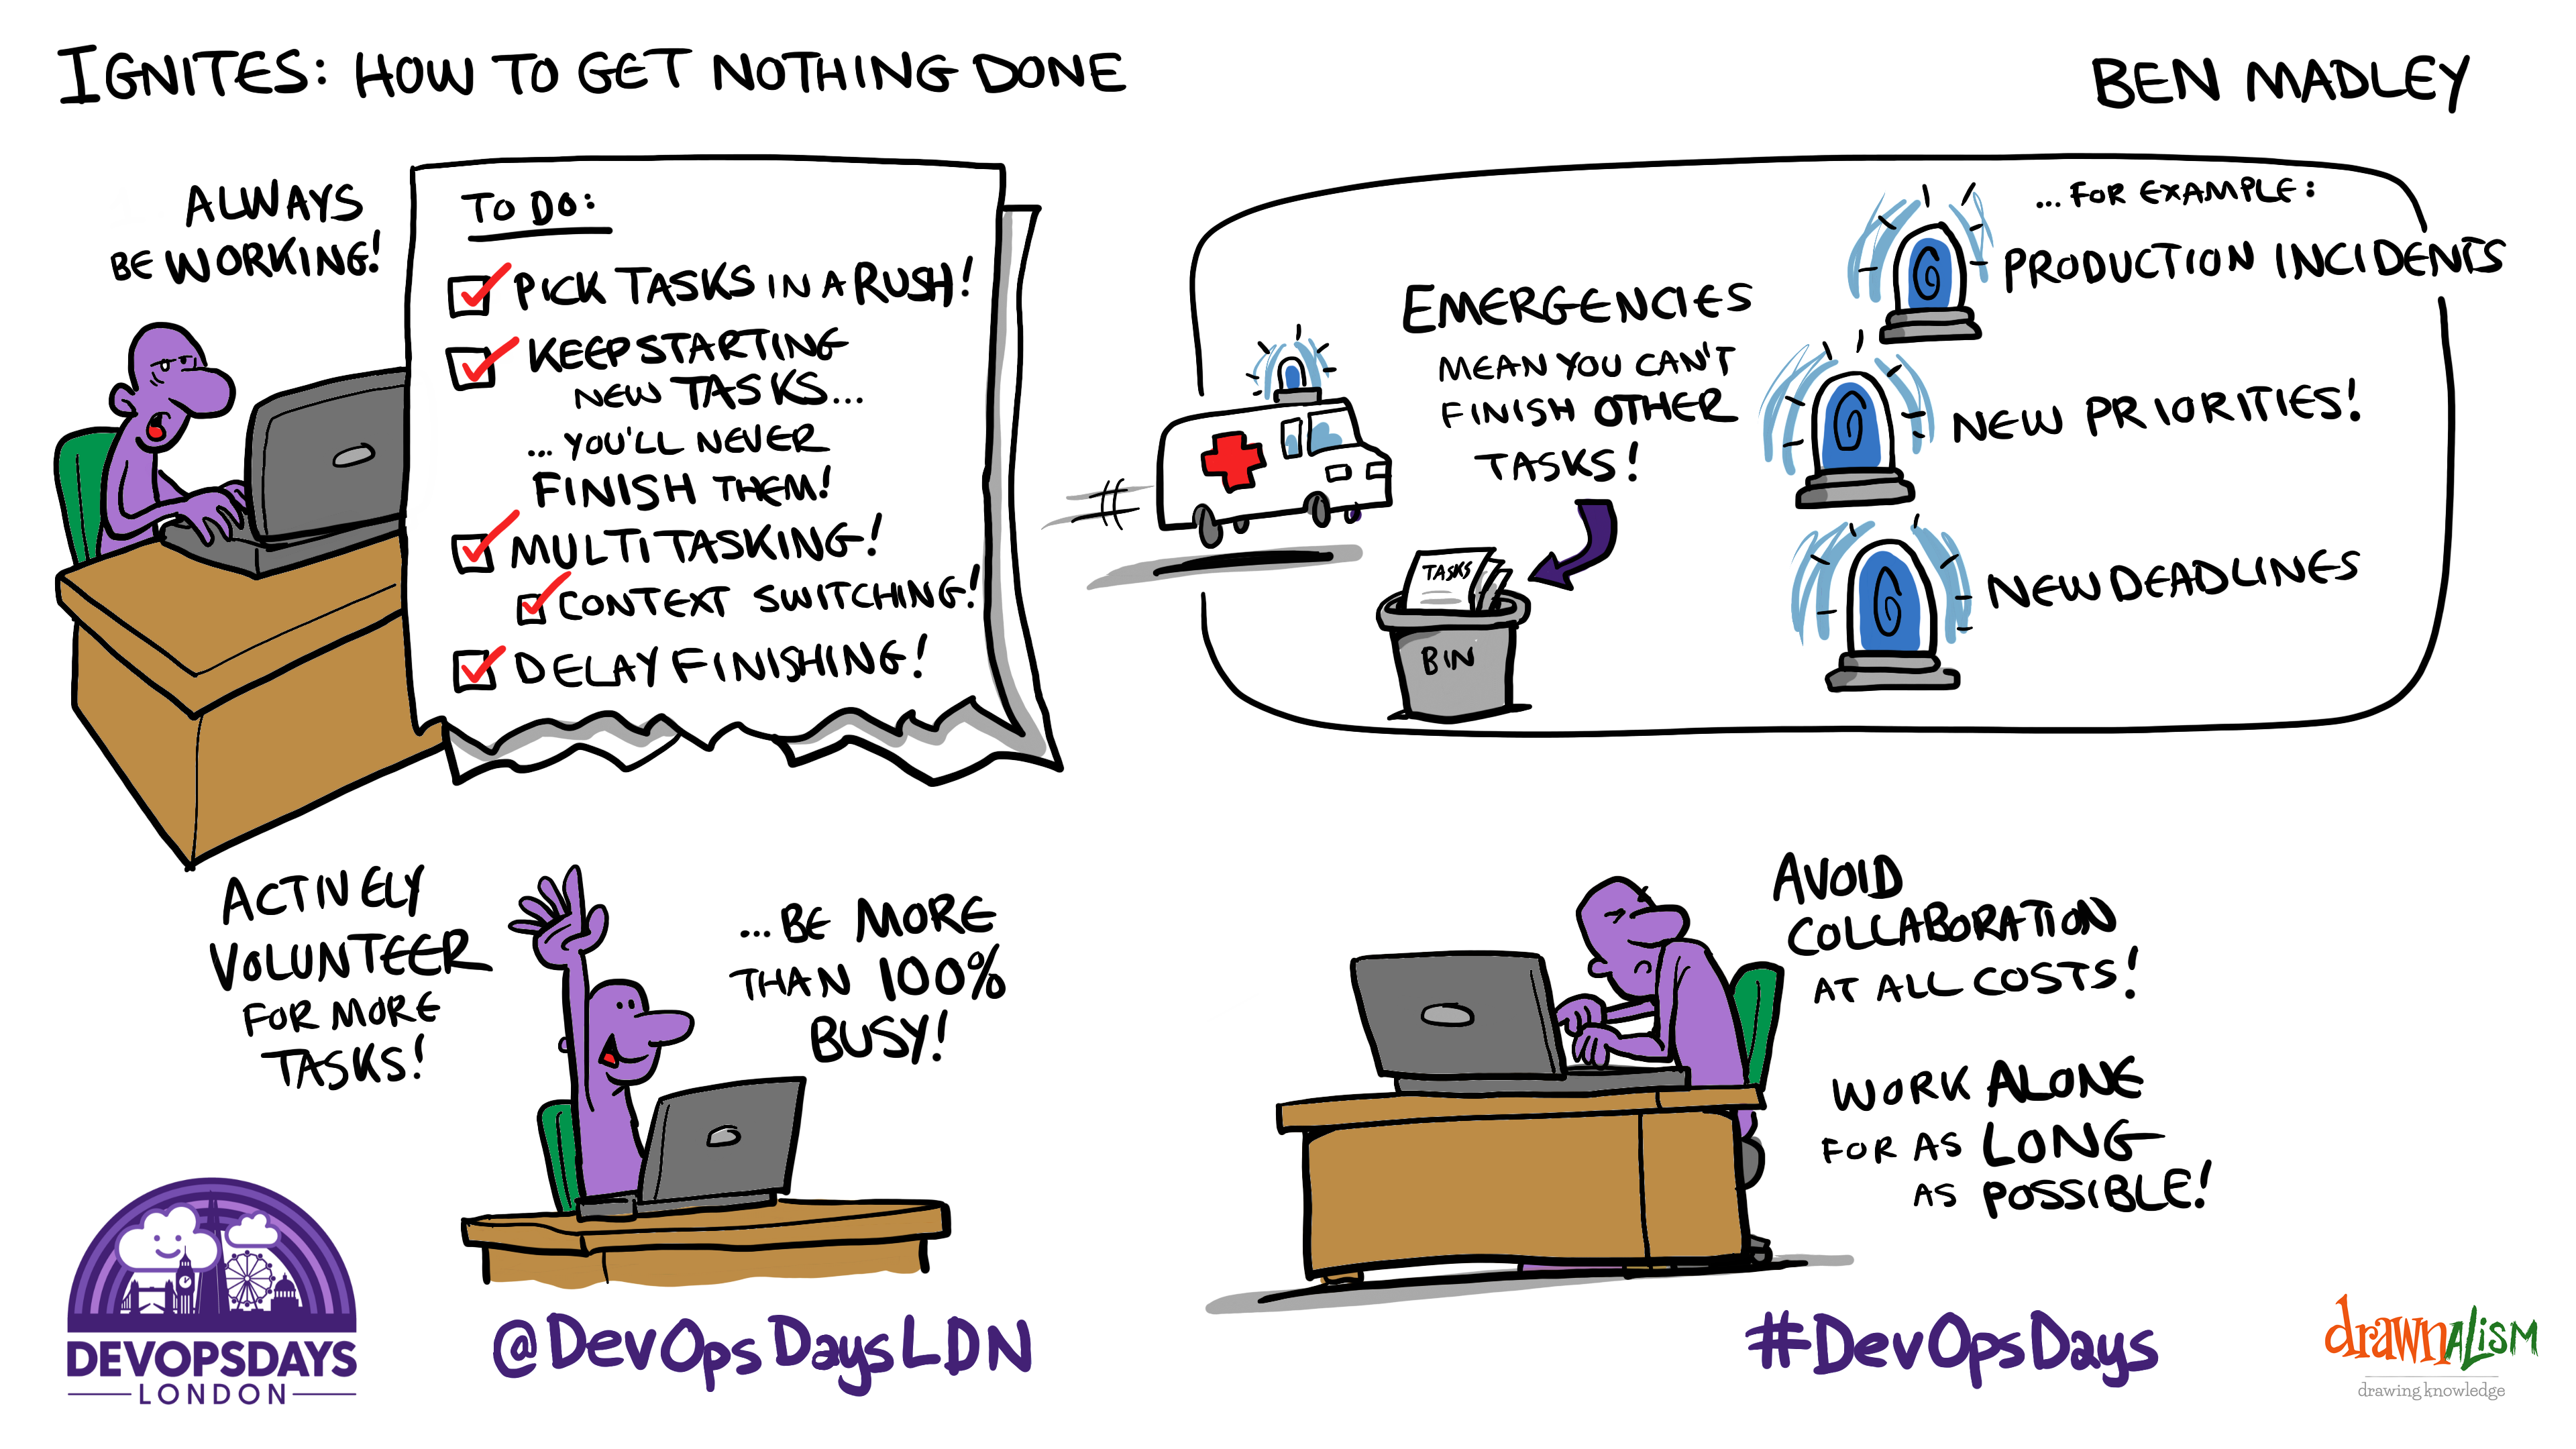 IGNITES: HOW TO GET NOTHING DONE
BEN MADLEY
ALWAYS
BE WORKING!
TO DO:
PICK TASKS IN A RUSH!
KEEP STARTING
NEW TASKS...
...YOU'LL NEVER
FINISH THEM!
MULTITASKING!
CONTEXT SWITCHING!
DELAY FINISHING!
EMERGENCIES
MEAN YOU CAN'T
FINISH OTHER
TASKS!
TASKS
BIN
...FOR EXAMPLE:
PRODUCTION INCIDENTS
NEW PRIORITIES!
NEW DEADLINES
ACTIVELY
VOLUNTEER
FOR MORE
TASKS!
...BE MORE
THAN 100%
BUSY!
AVOID
COLLABORATION
AT ALL COSTS!
WORK ALONE
FOR AS LONG
AS POSSIBLE!
DEVOPSDAYS
LONDON
@DevOpsDaysLDN
#DevOpsDays
drawnalism
drawing knowledge